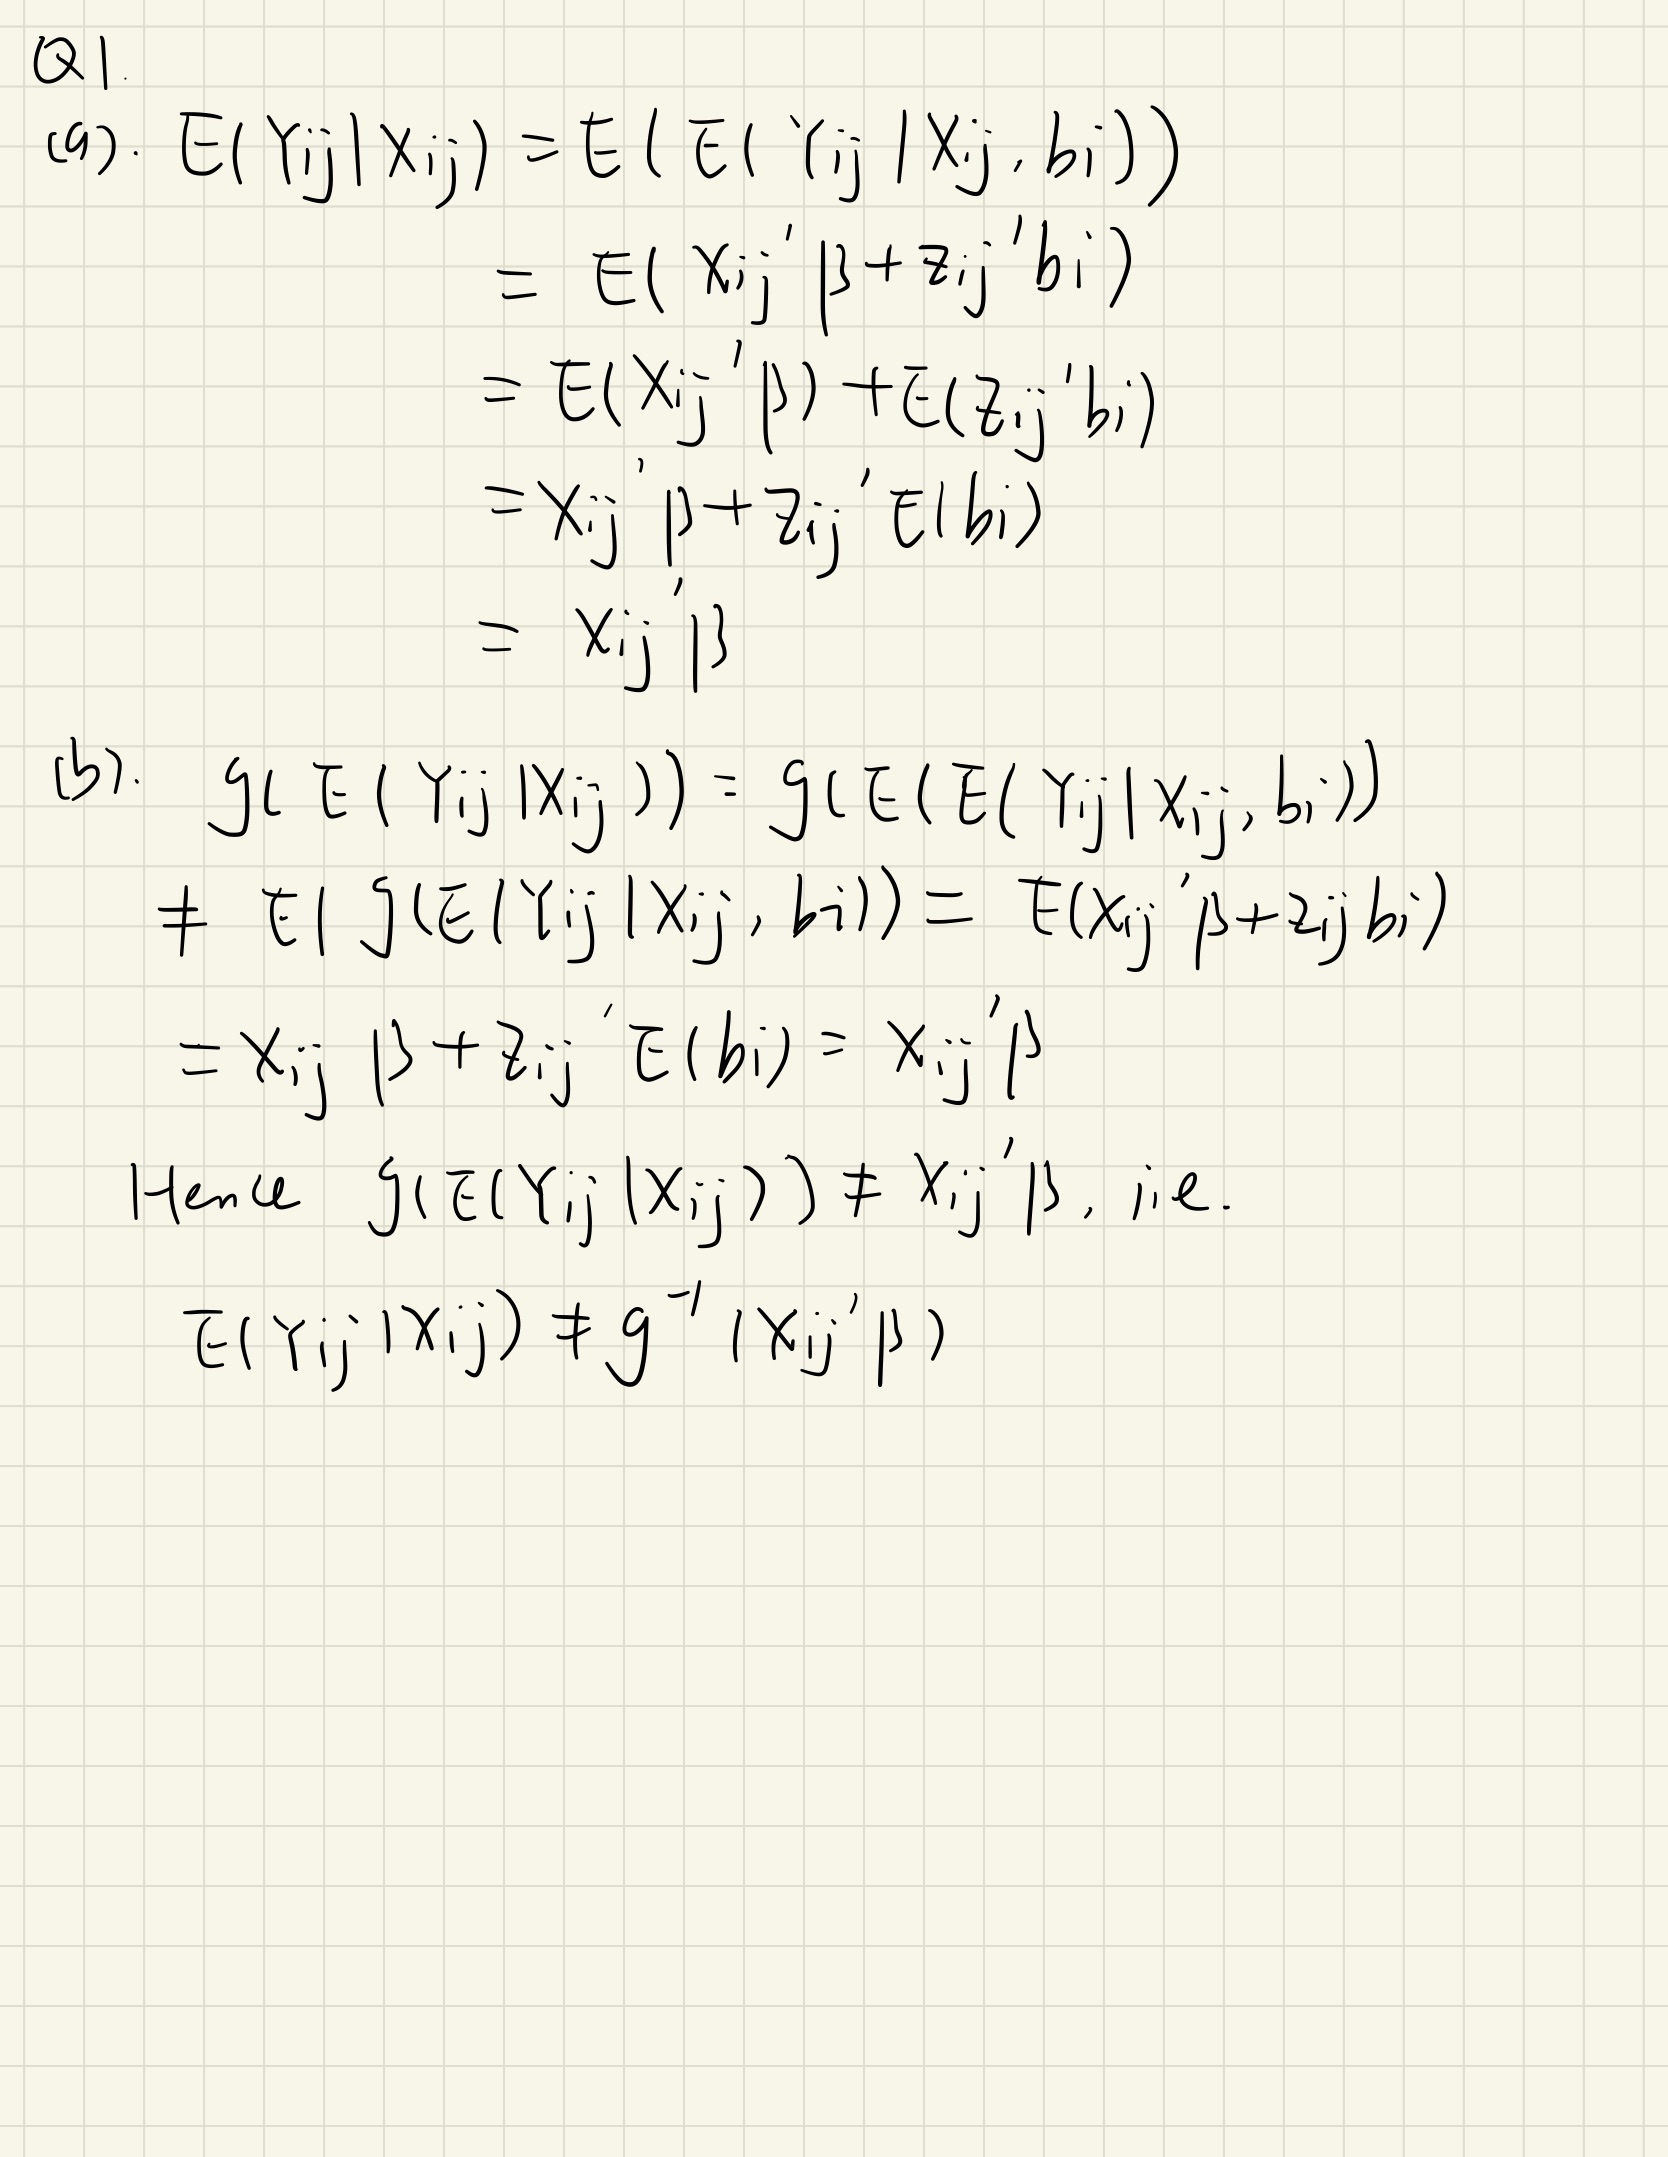 Q1.
(a). E(Yij|Xij) = E(E(Yij|Xij, bi))
= E(Xij'β + zij'bi)
= E(Xij'β) + E(Zij'bi)
= Xij'β + Zij'E(bi)
= Xij'β
(b). g(E(Yij|Xij)) = g(E(E(Yij|Xij, bi))
≠ E(g(E(Yij|Xij, bi)) = E(Xij'β + zij bi)
= Xij β + Zij'E(bi) = Xij'β
Hence g(E(Yij|Xij)) ≠ Xij'β, i.e.
E(Yij|Xij) ≠ g⁻¹(Xij'β)